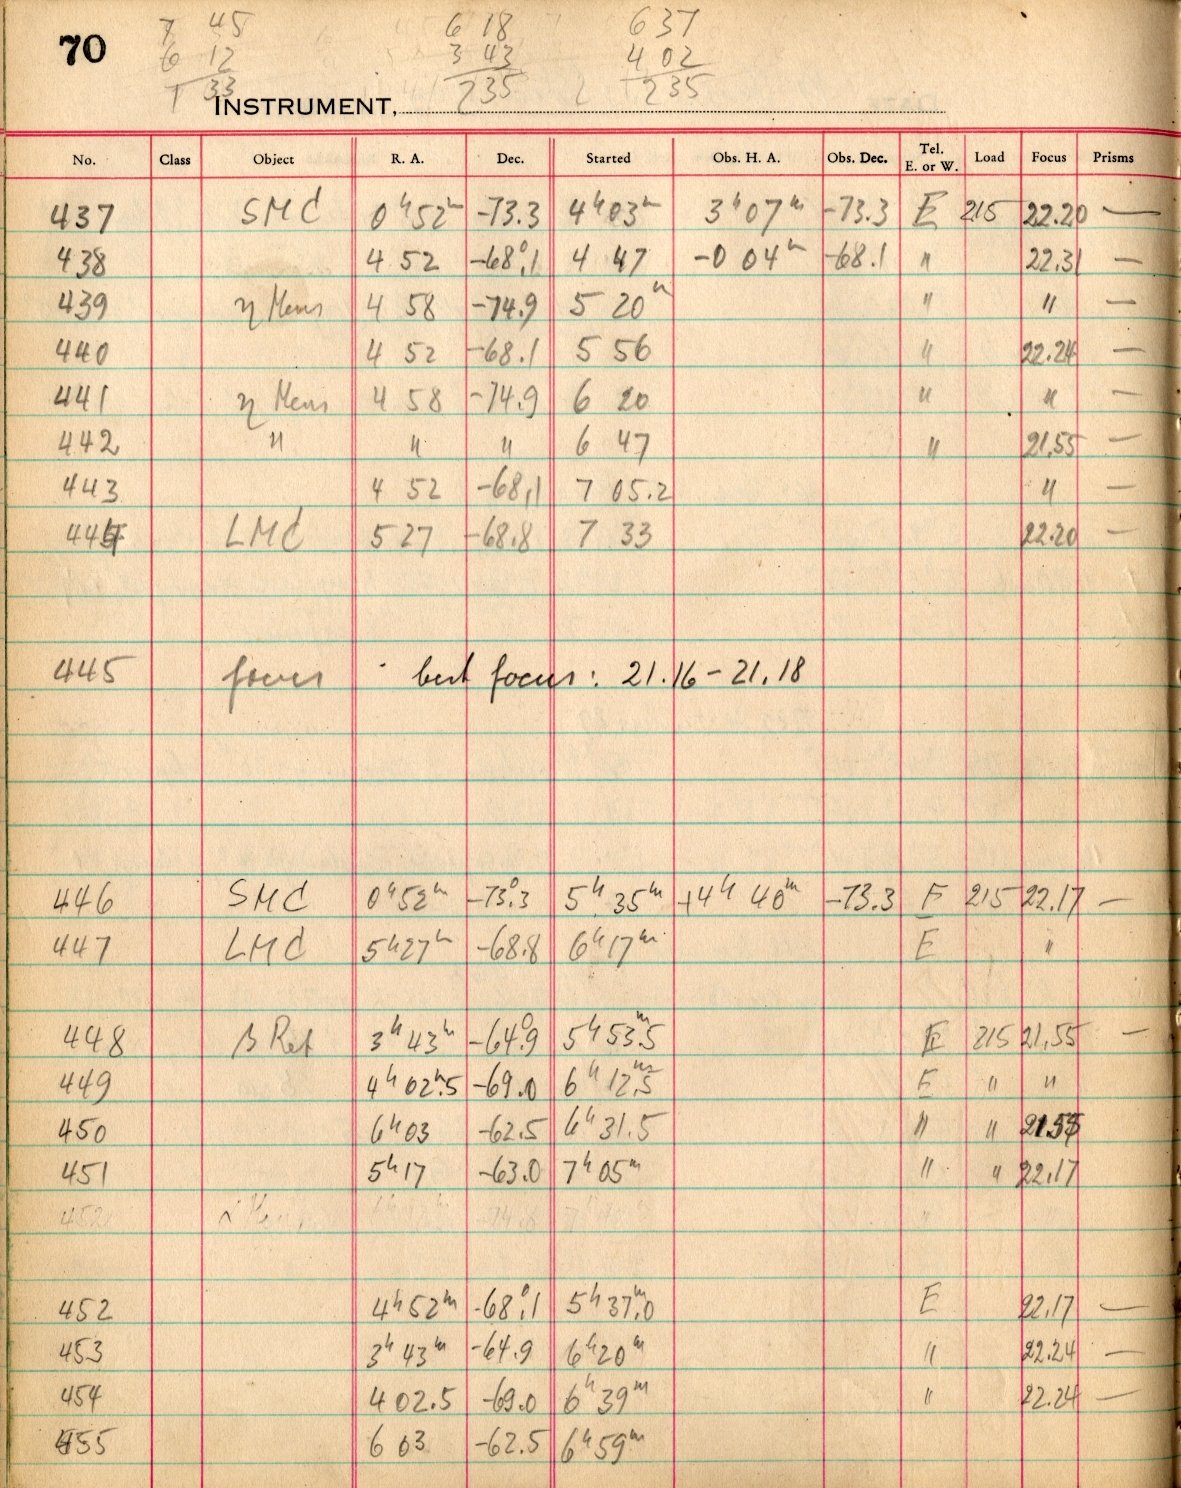 7 45 6 18 637
70 6 12 3 43 4 02
1 33 235 235
INSTRUMENT,
No. Class Object R. A. Dec. Started Obs. H. A. Obs. Dec. Tel. E. or W. Load Focus Prisms
437 SMC 0ʰ52ᵐ -73.3 4ʰ03ᵐ 3ʰ07ᵐ -73.3 E 215 22.20 —
438 4 52 -68°.1 4 47 -0 04ᵐ -68.1 " 22.31 —
439 η Mens 4 58 -74.9 5 20ᵐ " " —
440 4 52 -68.1 5 56 " 22.24 —
441 η Mens 4 58 -74.9 6 20 " " —
442 " " " 6 47 " 21.55 —
443 4 52 -68.1 7 05.2 " —
444 LMC 5 27 -68.8 7 33 22.20 —
445 focus best focus: 21.16 - 21.18
446 SMC 0ʰ52ᵐ -73°.3 5ʰ35ᵐ +4ʰ 40ᵐ -73.3 E 215 22.17 —
447 LMC 5ʰ27ᵐ -68.8 6ʰ17ᵐ E "
448 β Ret 3ʰ43ᵐ -64°.9 5ʰ53ᵐ.5 E 215 21.55 —
449 4ʰ02ᵐ.5 -69.0 6ʰ12ᵐ.5 E " "
450 6ʰ03 -62.5 6ʰ31.5 " "
451 5ʰ17 -63.0 7ʰ05ᵐ " " 22.17
452 "
452 4ʰ52ᵐ -68°.1 5ʰ37ᵐ.0 E 22.17 —
453 3ʰ43ᵐ -64.9 6ʰ20ᵐ " 22.24 —
454 4 02.5 -69.0 6ʰ39ᵐ " 22.24 —
455 6 03 -62.5 6ʰ59ᵐ